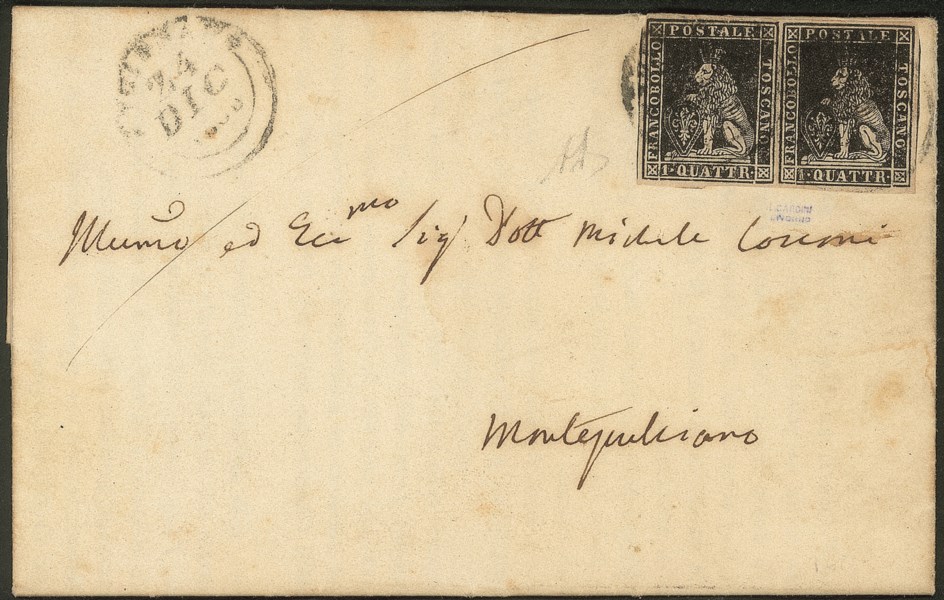 24
DIC
POSTALE
FRANCOBOLLO
TOSCANO
1 QUATTR.
POSTALE
FRANCOBOLLO
TOSCANO
1 QUATTR.
ed Ecc mo Sig Dott Michele
Montepulciano